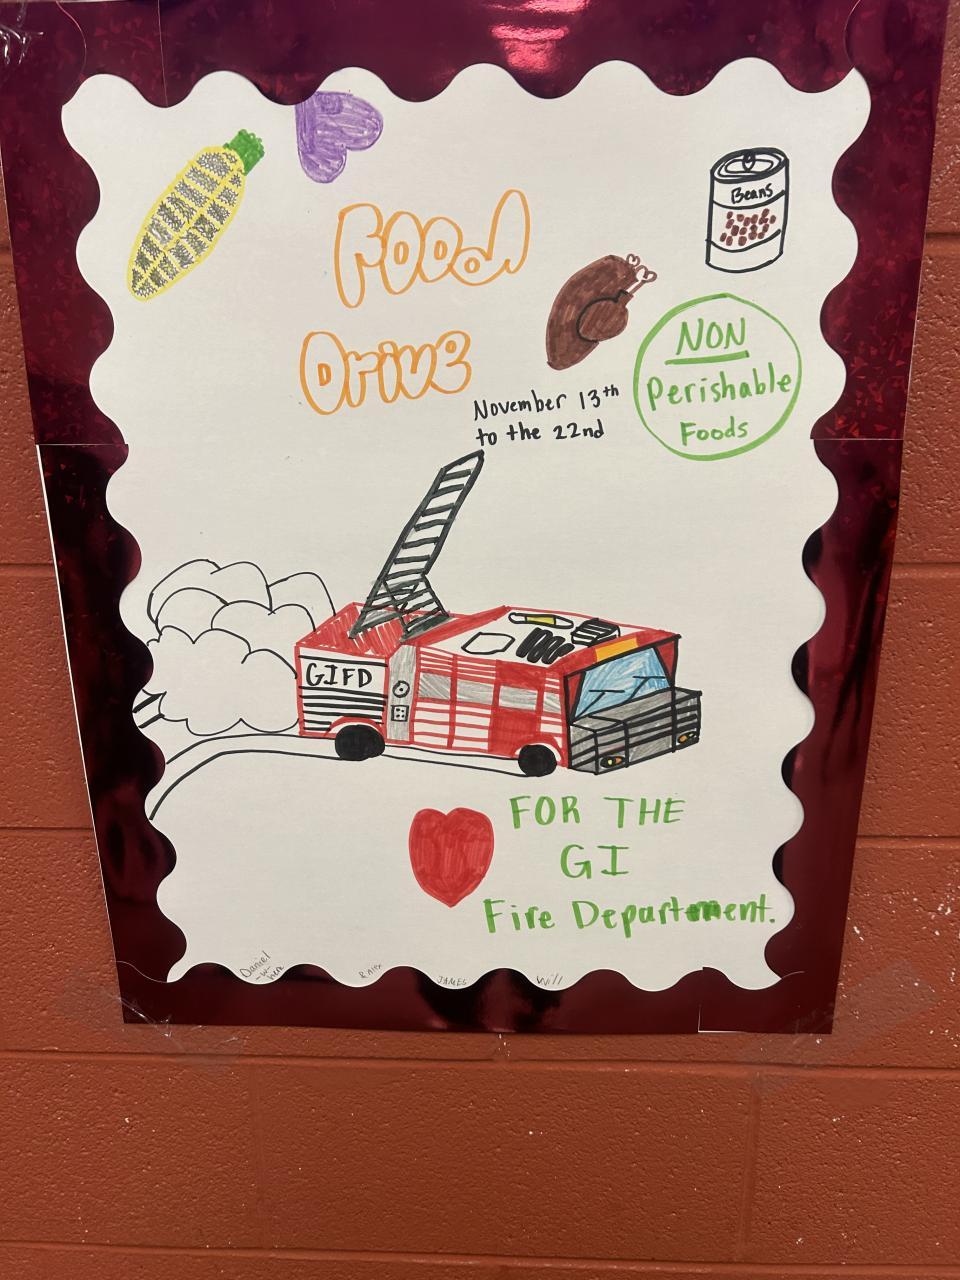 Food
Drive
Beans
NON
Perishable
Foods
November 13th
to the 22nd
GIFD
FOR THE
GI
Fire Department.
Daniel
-W-
JAMES
Will